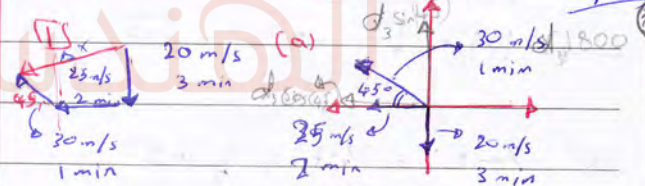 1
x
20 m/s
3 min
25 m/s
2 min
45
30 m/s
1 min
(a)
d3 sin45
30 m/s
1 min
1800
d3 cos45
45°
25 m/s
2 min
20 m/s
3 min
المهندس